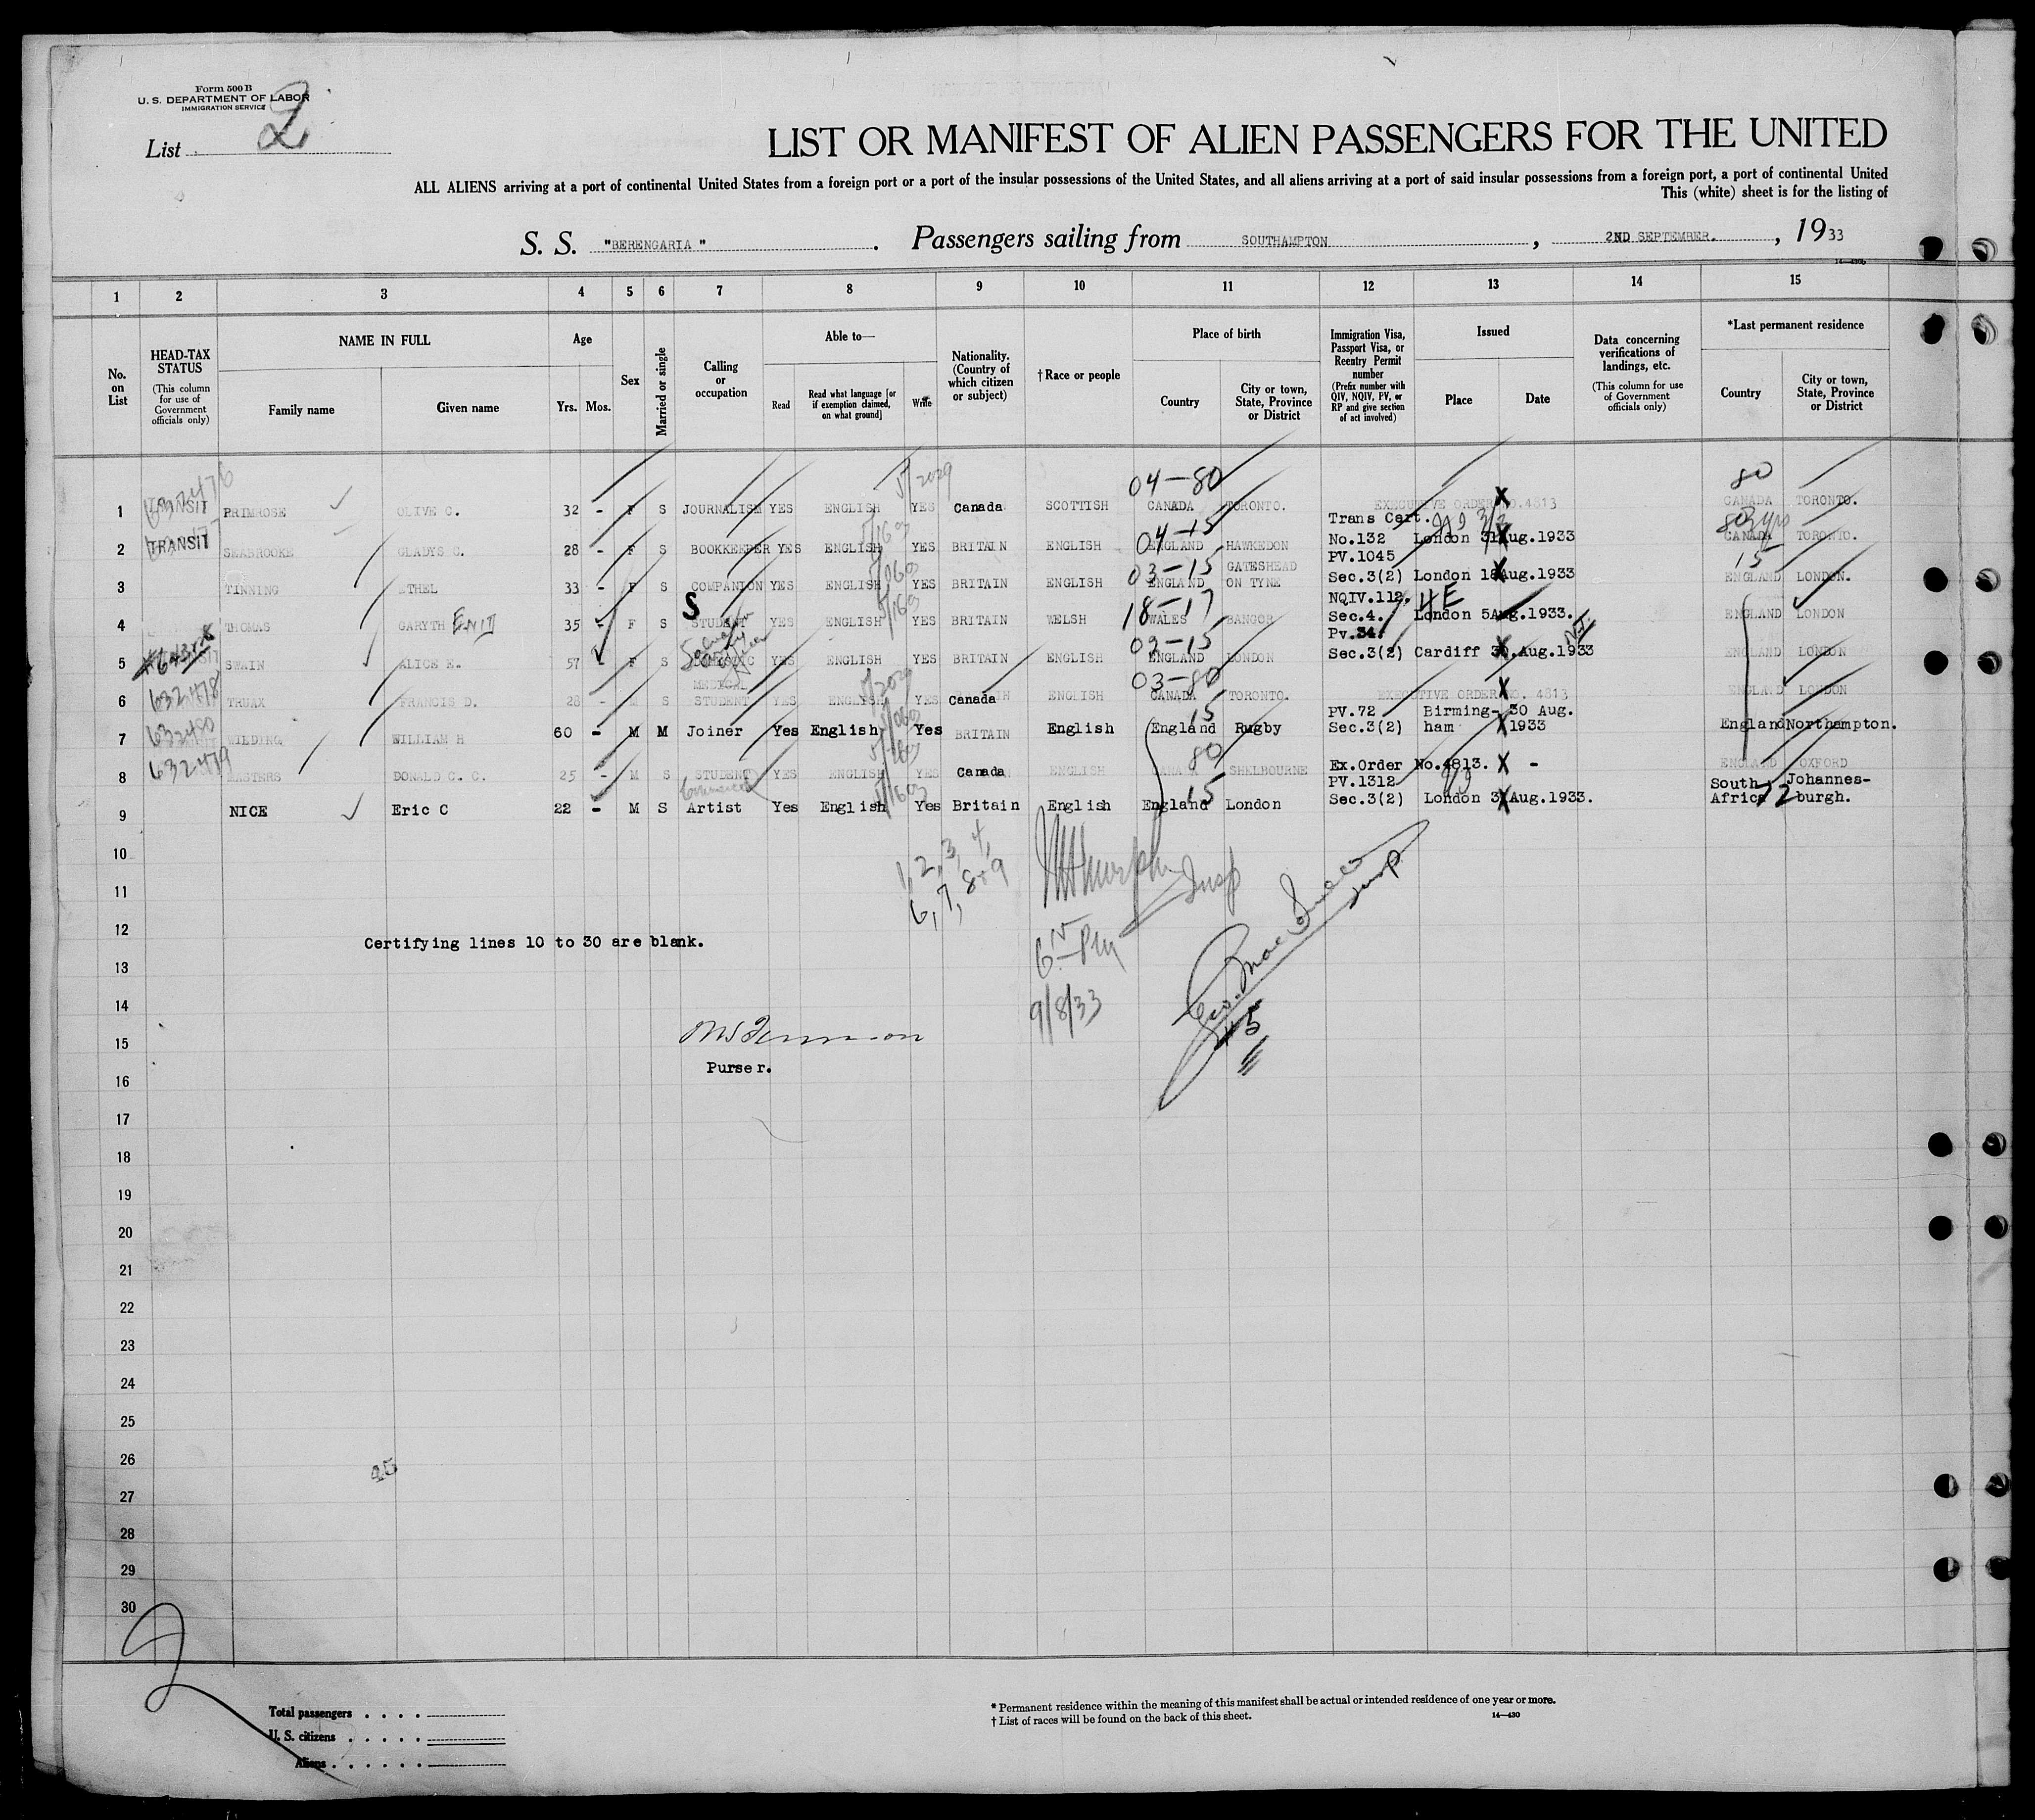 Form 500 B
U. S. DEPARTMENT OF LABOR
IMMIGRATION SERVICE
List 2
LIST OR MANIFEST OF ALIEN PASSENGERS FOR THE UNITED
ALL ALIENS arriving at a port of continental United States from a foreign port or a port of the insular possessions of the United States, and all aliens arriving at a port of said insular possessions from a foreign port, a port of continental United
This (white) sheet is for the listing of
S. S. "BERENGARIA" . Passengers sailing from SOUTHAMPTON , 2ND SEPTEMBER. , 1933
1 2 3 4 5 6 7 8 9 10 11 12 13 14 15
No. on List
HEAD-TAX STATUS (This column for use of Government officials only)
NAME IN FULL Family name Given name
Age Yrs. Mos.
Sex
Married or single
Calling or occupation
Able to— Read Read what language [or if exemption claimed, on what ground] Write
Nationality. (Country of which citizen or subject)
†Race or people
Place of birth Country City or town, State, Province or District
Immigration Visa, Passport Visa, or Reentry Permit number (Prefix number with QIV, NQIV, PV, or RP and give section of act involved)
Issued Place Date
Data concerning verifications of landings, etc. (This column for use of Government officials only)
*Last permanent residence Country City or town, State, Province or District
04-80 80
1 TRANSIT PRIMROSE OLIVE C. 32 - F S JOURNALISM YES ENGLISH YES Canada SCOTTISH CANADA TORONTO. EXECUTIVE ORDER NO.4813 CANADA TORONTO.
04-15 Trans Cert.
2 TRANSIT SEABROOKE GLADYS C. 28 - F S BOOKKEEPER YES ENGLISH YES BRITAIN ENGLISH ENGLAND HAWKEDON No.132 London 31 Aug.1933 CANADA TORONTO.
03-15 GATESHEAD PV.1045 15
3 TINNING ETHEL 33 - F S COMPANION YES ENGLISH YES BRITAIN ENGLISH ENGLAND ON TYNE Sec.3(2) London 18 Aug.1933 ENGLAND LONDON.
18-17 NQIV.112. 4E
4 THOMAS GARYTH ENID 35 F S STUDENT YES ENGLISH YES BRITAIN WELSH WALES BANGOR Sec.4. London 5 Aug.1933. ENGLAND LONDON
02-15 Pv.34.
5 SWAIN ALICE E. 57 - F S DOMESTIC YES ENGLISH YES BRITAIN ENGLISH ENGLAND LONDON Sec.3(2) Cardiff 30.Aug.1933 ENGLAND LONDON
03-80
6 632478 TRUAX FRANCIS D. 28 - M S MEDICAL STUDENT YES ENGLISH YES Canada ENGLISH CANADA TORONTO. EXECUTIVE ORDER NO. 4813 ENGLAND LONDON
15 PV.72 Birming- 30 Aug.
7 632480 WILDING WILLIAM H 60 - M M Joiner Yes English Yes BRITAIN English England Rugby Sec.3(2) ham 1933 England Northampton.
80
8 632479 MASTERS DONALD C. C. 25 - M S STUDENT YES ENGLISH YES Canada ENGLISH CANADA SHELBOURNE Ex.Order No.4813. - ENGLAND OXFORD
15 PV.1312 South Johannes-
9 NICE Eric C 22 - M S Commercial Artist Yes English Yes Britain English England London Sec.3(2) London 3 Aug.1933. Africa 72 burgh.
10
1, 2, 3, 4,
6, 7, 8+9
Insp
Insp
11
12
Certifying lines 10 to 30 are blank.
13
14
9/8/33
15
Purser.
16
17
18
19
20
21
22
23
24
25
26
27
28
29
30
2
Total passengers
U. S. citizens
Aliens
* Permanent residence within the meaning of this manifest shall be actual or intended residence of one year or more.
† List of races will be found on the back of this sheet. 14—430